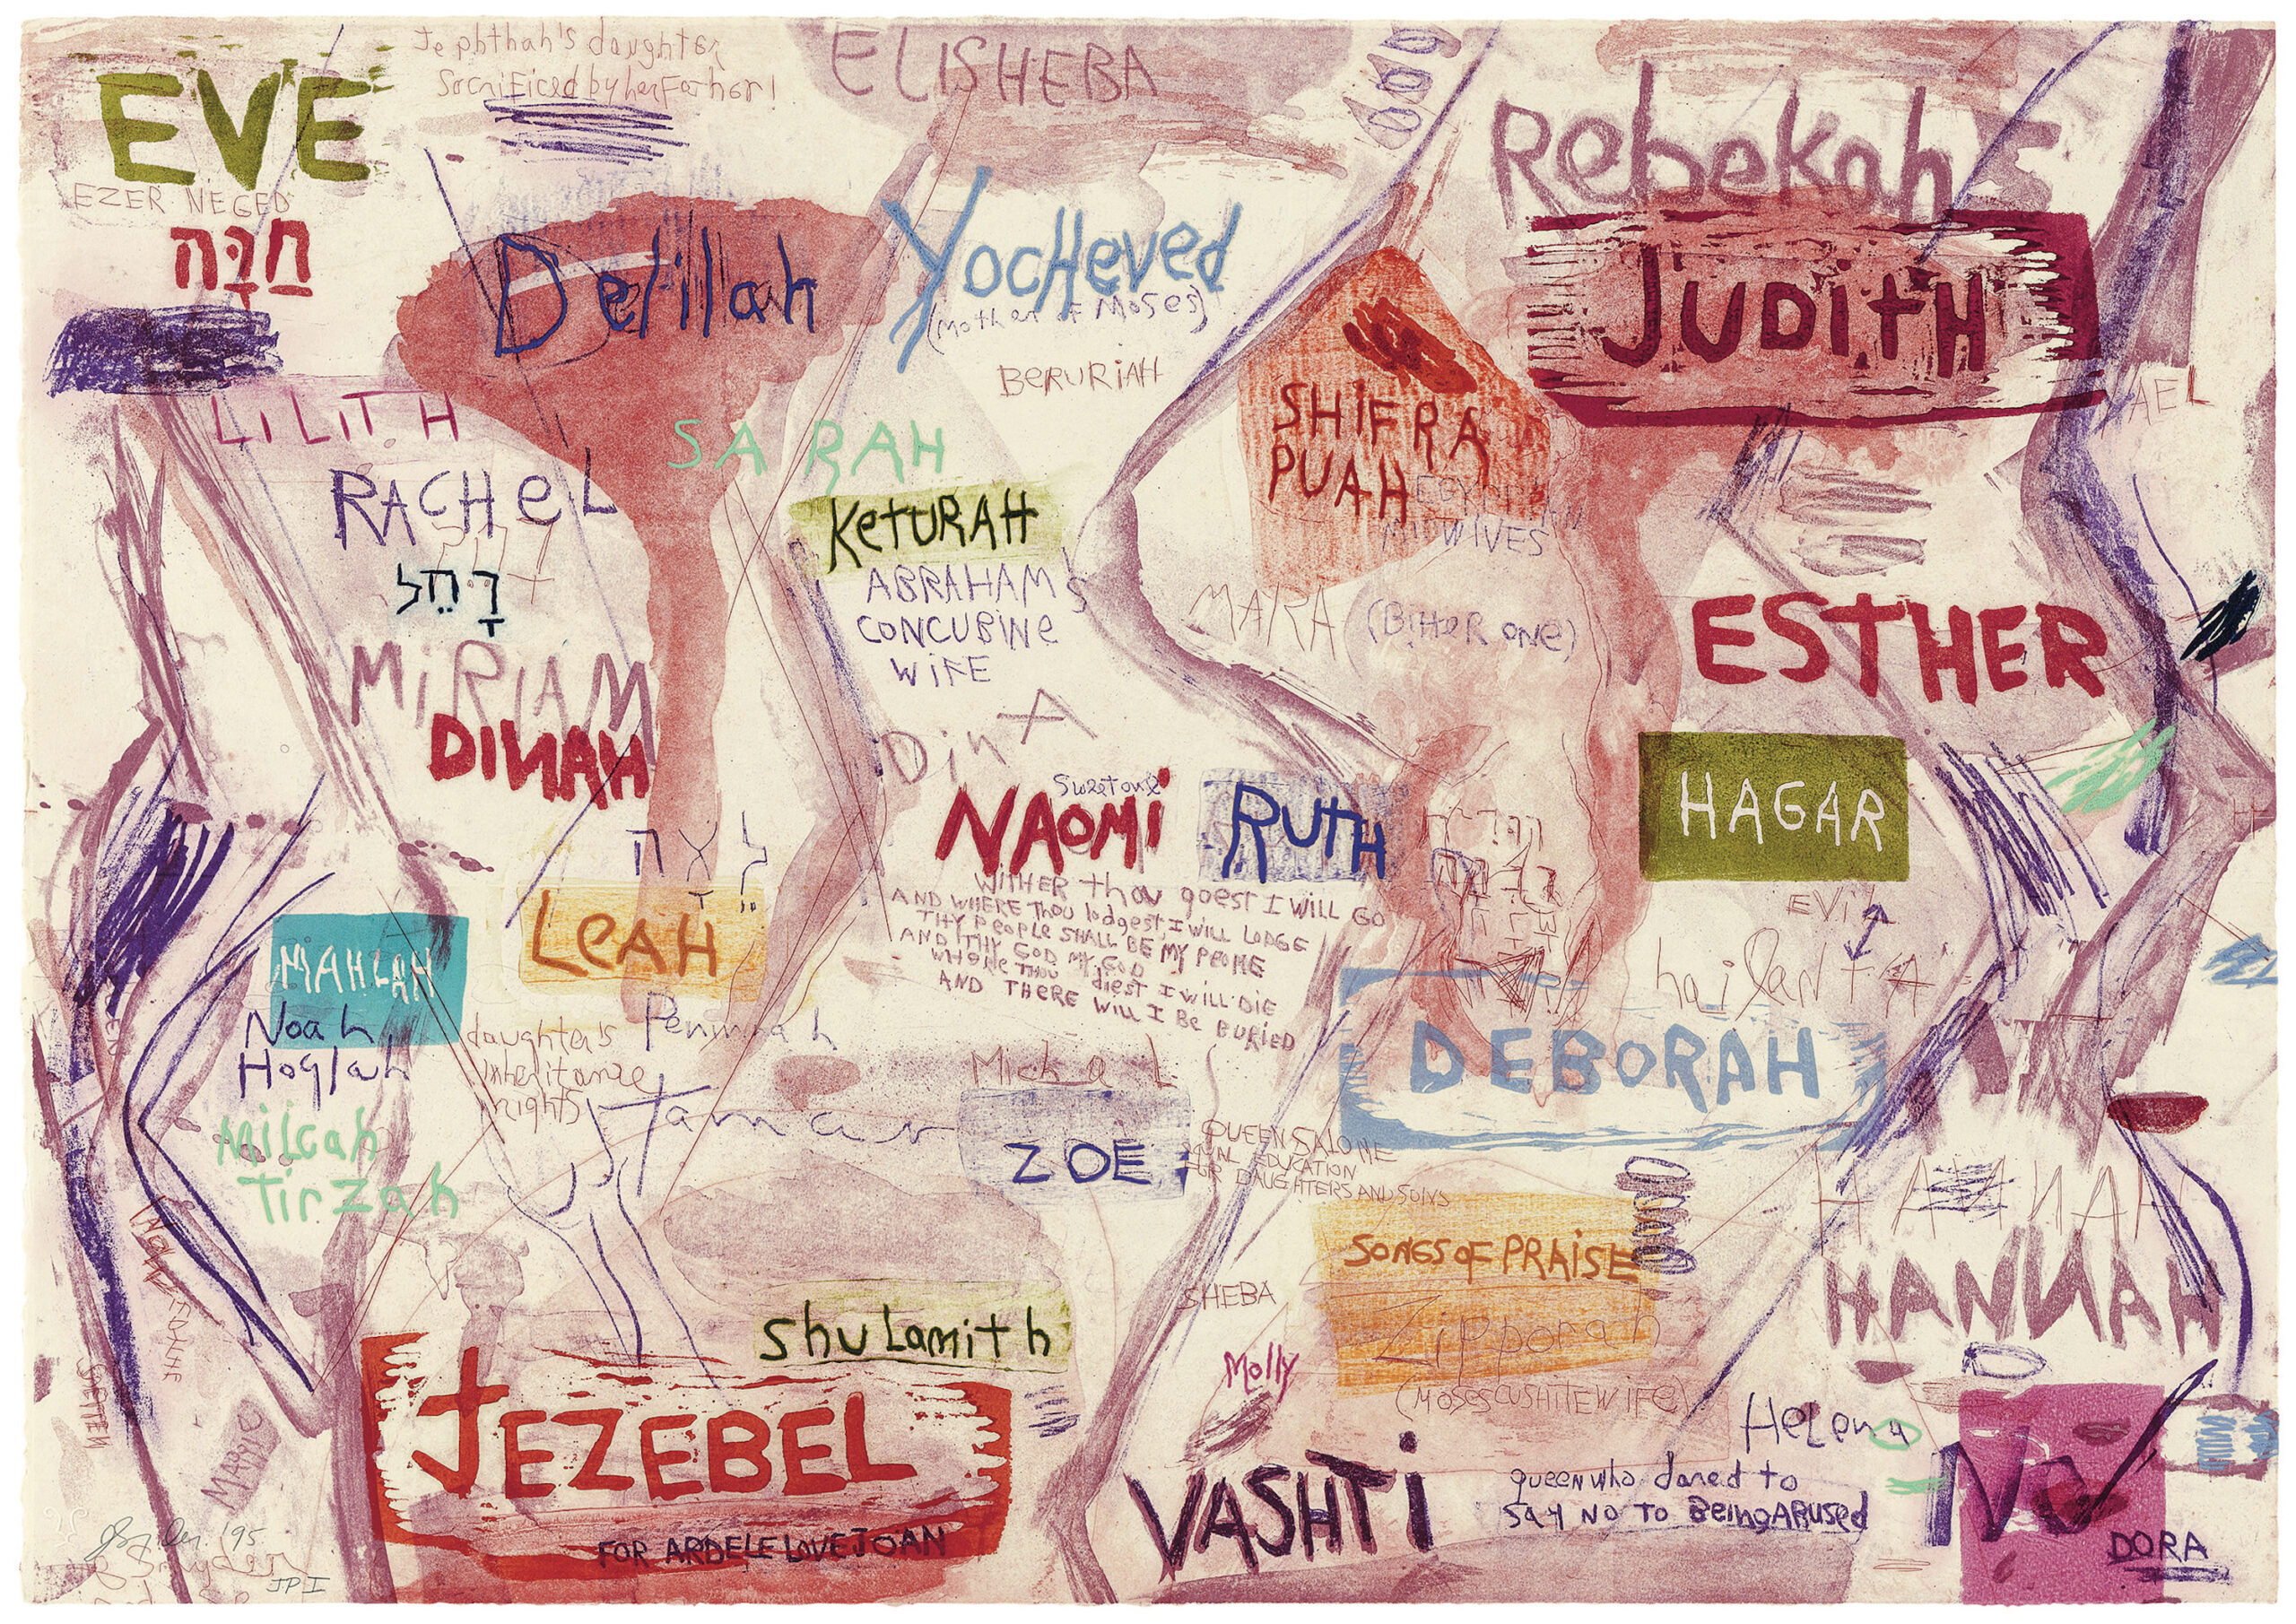 EVE
Jephthah's daughter
Sacrificed by her Father!
ELISHEBA
Rebekah
EZER NEGED
חַוָּה
Delilah
Yocheved
(Mother of Moses)
BERURIAH
JUDITH
AEL
LiLiTH
SARAH
SHIFRA
PUAH
EGYPTIAN
MIDWIVES
RACHeL
רָחֵל
KeTURAH
ABRAHAM'S
CONCUBINe
WiFE
MARA (BitteR one)
ESTHER
MiRIAM
DINAH
DinA
Sweet one
NAOMi
RUTH
HAGAR
לֵאָה
LeAH
WITHER thou goest I WILL GO
AND WHERE Thou lodgest, I WILL LODGE
THY PEOPLE SHALL BE MY PEOPLE
AND THY GOD MY GOD
WHERE THOU diest I WILL DIE
AND THERE WILL I Be BURIED
EViL
MAHLAH
Noah
Hoglah
Milcah
Tirzah
daughter's
inheritance
rights
Peninnah
DEBORAH
Michal
Tamar
ZOE
QUEEN SALOME
EQUAL EDUCATION
FOR DAUGHTERS AND SONS
HANNAH
HANNAH
SONGS OF PRAiSE
SHEBA
Zipporah
(MOSES CUSHITE WIFE)
Shulamith
Molly
JEZEBEL
FOR ARDELE LOVE JOAN
MARIE
VASHTi
Helena
queen who dared to
SAY NO TO BeingABUsed
NO
DORA
JSnyder '95
JP I